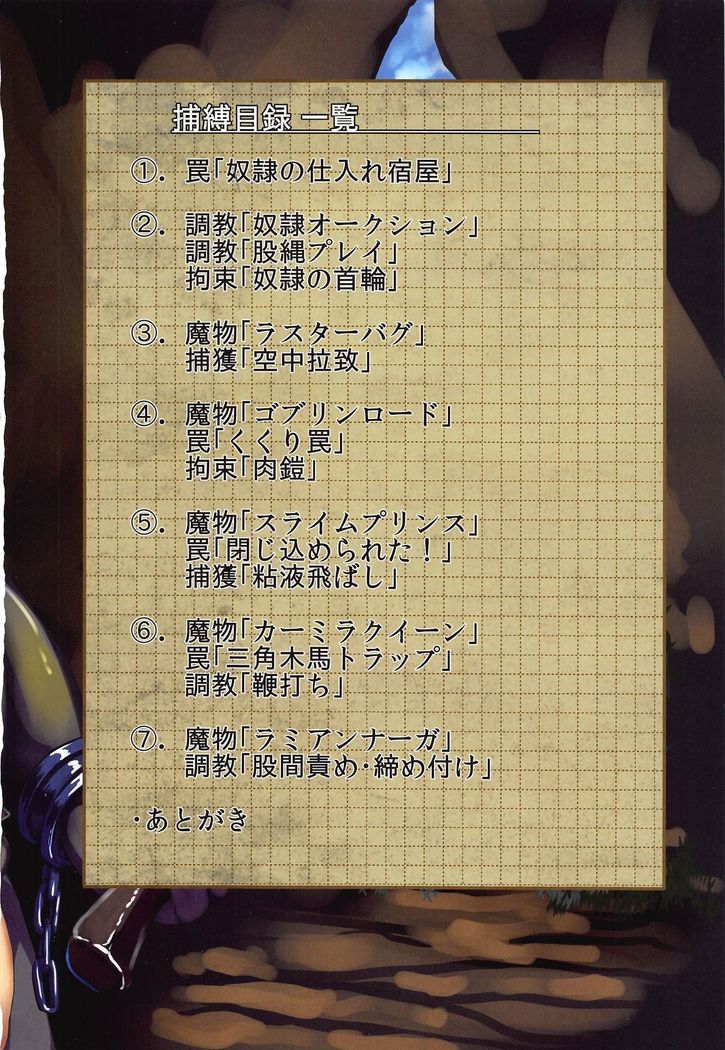 捕縛目録 一覧
①. 罠「奴隷の仕入れ宿屋」
②. 調教「奴隷オークション」
調教「股縄プレイ」
拘束「奴隷の首輪」
③. 魔物「ラスターバグ」
捕獲「空中拉致」
④. 魔物「ゴブリンロード」
罠「くくり罠」
拘束「肉鎧」
⑤. 魔物「スライムプリンス」
罠「閉じ込められた！」
捕獲「粘液飛ばし」
⑥. 魔物「カーミラクイーン」
罠「三角木馬トラップ」
調教「鞭打ち」
⑦. 魔物「ラミアンナーガ」
調教「股間責め・締め付け」
・あとがき